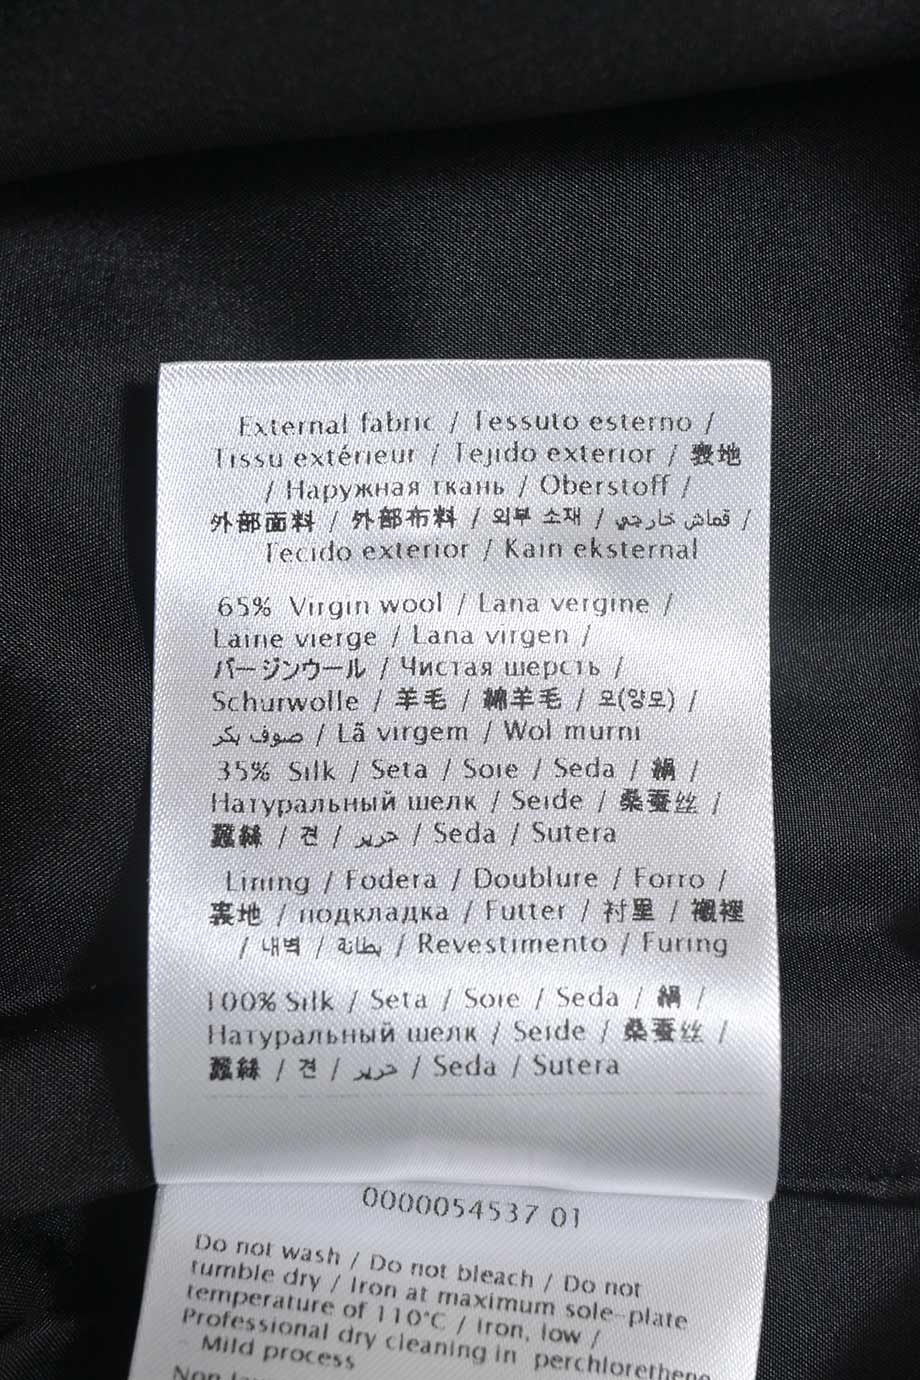 External fabric / Tessuto esterno /
Tissu extérieur / Tejido exterior / 表地
/ Наружная ткань / Oberstoff /
外部面料 / 外部布料 / 외부 소재 / قماش خارجي /
Tecido exterior / Kain eksternal
65% Virgin wool / Lana vergine /
Laine vierge / Lana virgen /
バージンウール / Чистая шерсть /
Schurwolle / 羊毛 / 綿羊毛 / 모(양모) /
صوف بكر / Lã virgem / Wol murni
35% Silk / Seta / Soie / Seda / 絹 /
Натуральный шелк / Seide / 桑蚕丝 /
蠶絲 / 견 / حرير / Seda / Sutera
Lining / Fodera / Doublure / Forro /
裏地 / подкладка / Futter / 衬里 / 襯裡
/ 내벽 / بطانة / Revestimento / Furing
100% Silk / Seta / Soie / Seda / 絹 /
Натуральный шелк / Seide / 桑蚕丝 /
蠶絲 / 견 / حرير / Seda / Sutera
0000054537 01
Do not wash / Do not bleach / Do not
tumble dry / Iron at maximum sole-plate
temperature of 110°C / Iron, low /
Professional dry cleaning in perchlorethene
- Mild process